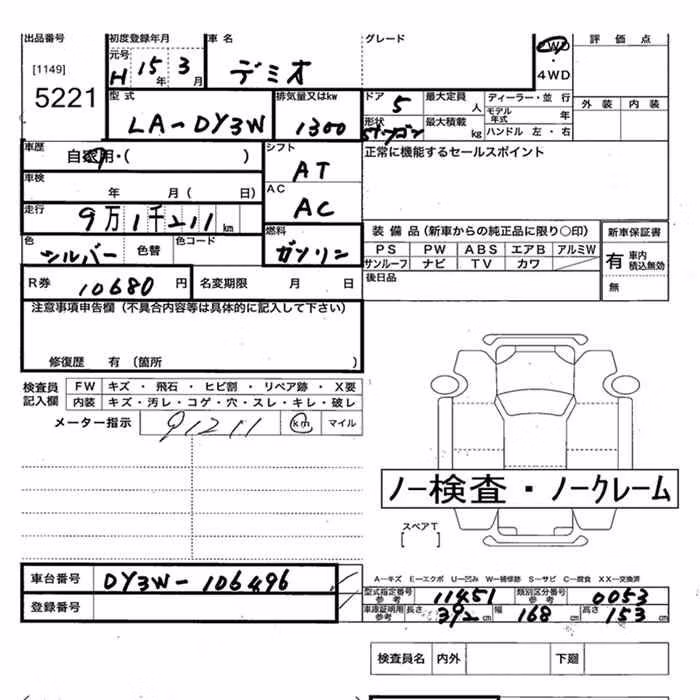 出品番号 初度登録年月 車 名 グレード 2WD 評 価 点
[1149] 元号 ・
5221 H 15 年 3 月 デミオ 4WD
型 式 排気量又はkw ドア 5 最大定員 人 ディーラー・並 行 外 装 内 装
LA-DY3W 1300 形状 最大積載 kg モデル年式 年
ハンドル 左・右
車歴 自家用・( ) シフト AT 正常に機能するセールスポイント
車検 年 月( 日) AC AC
走行 9万1千211 km 燃料 ガソリン 装 備 品(新車からの純正品に限り○印) 新車保証書
色 シルバー 色替 色コード PS PW ABS エアB アルミW 有 車内積込無効
サンルーフ ナビ TV カワ
R券 10680 円 名変期限 月 日 後日品 無
注意事項申告欄(不具合内容等は具体的に記入して下さい)
修復歴 有 (箇所 )
検査員記入欄 FW キズ ・ 飛石 ・ ヒビ割 ・ リペア跡 ・ X要
内装 キズ・汚レ・コゲ・穴・スレ・キレ・破レ
メーター指示 91211 km マイル
ノー検査・ノークレーム
スペアT
[ ]
車台番号 DY3W-106496 A-キズ E-エクボ U-凹み W-補修跡 S-サビ C-腐食 XX-交換済
登録番号 型式指定番号 参考 11451 類別区分番号 参考 0053
車庫証明用 参考 長さ 392 cm 幅 168 cm 高さ 153 cm
検査員名 内外 下廻